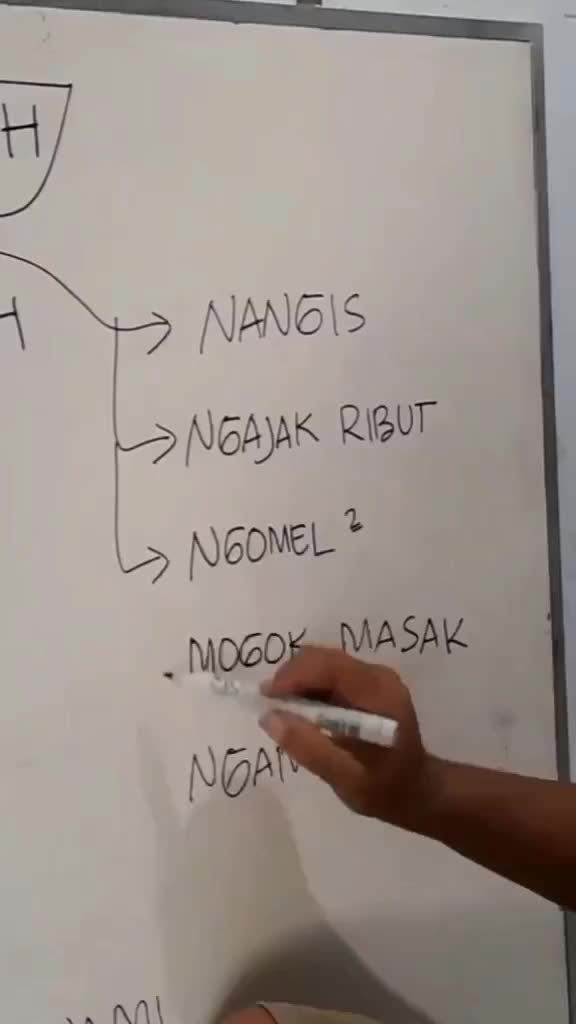 H
NANGIS
NGAJAK RIBUT
NGOMEL ²
MOGOK MASAK